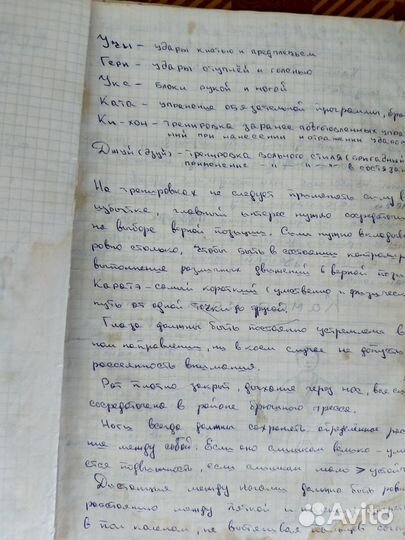 Учи - удары кистью и предплечьем
Гери - удары ступнёй и голенью
Уке - блоки рукой и ногой
Ката - упражнение обязательной программы,
Ки-хон - тренировка заранее подготовленных
ний при нанесении и отражении
Джуй (дзуй) - тренировка вольного стиля
применение - " - " - в состяза
На тренировках не следует применять силу в
избытке, главный интерес нужно сосредоточи
на выборе верной позиции. Силы нужно вкладыв
ровно столько, чтобы быть в состоянии контроли
выполнение различных движений в верной пози
Каратэ - самый короткий (умственно и физическ
путь от одной точки до другой.
Глаза должны быть постоянно устремлены в
ном направлении, ни в коем случае не допуск
рассеянность внимания.
Рот плотно закрыт, дыхание через нос, все
сосредоточена в районе брюшного пресса.
Ноги всегда должны сохранять определённое рас
ние между собой. Если оно слишком велико -
ется подвижность, если слишком мало >
Дистанция между ногами должна быть
расстоянию между пяткой и
в пол коленом, не вытягивая пальцы
Avito